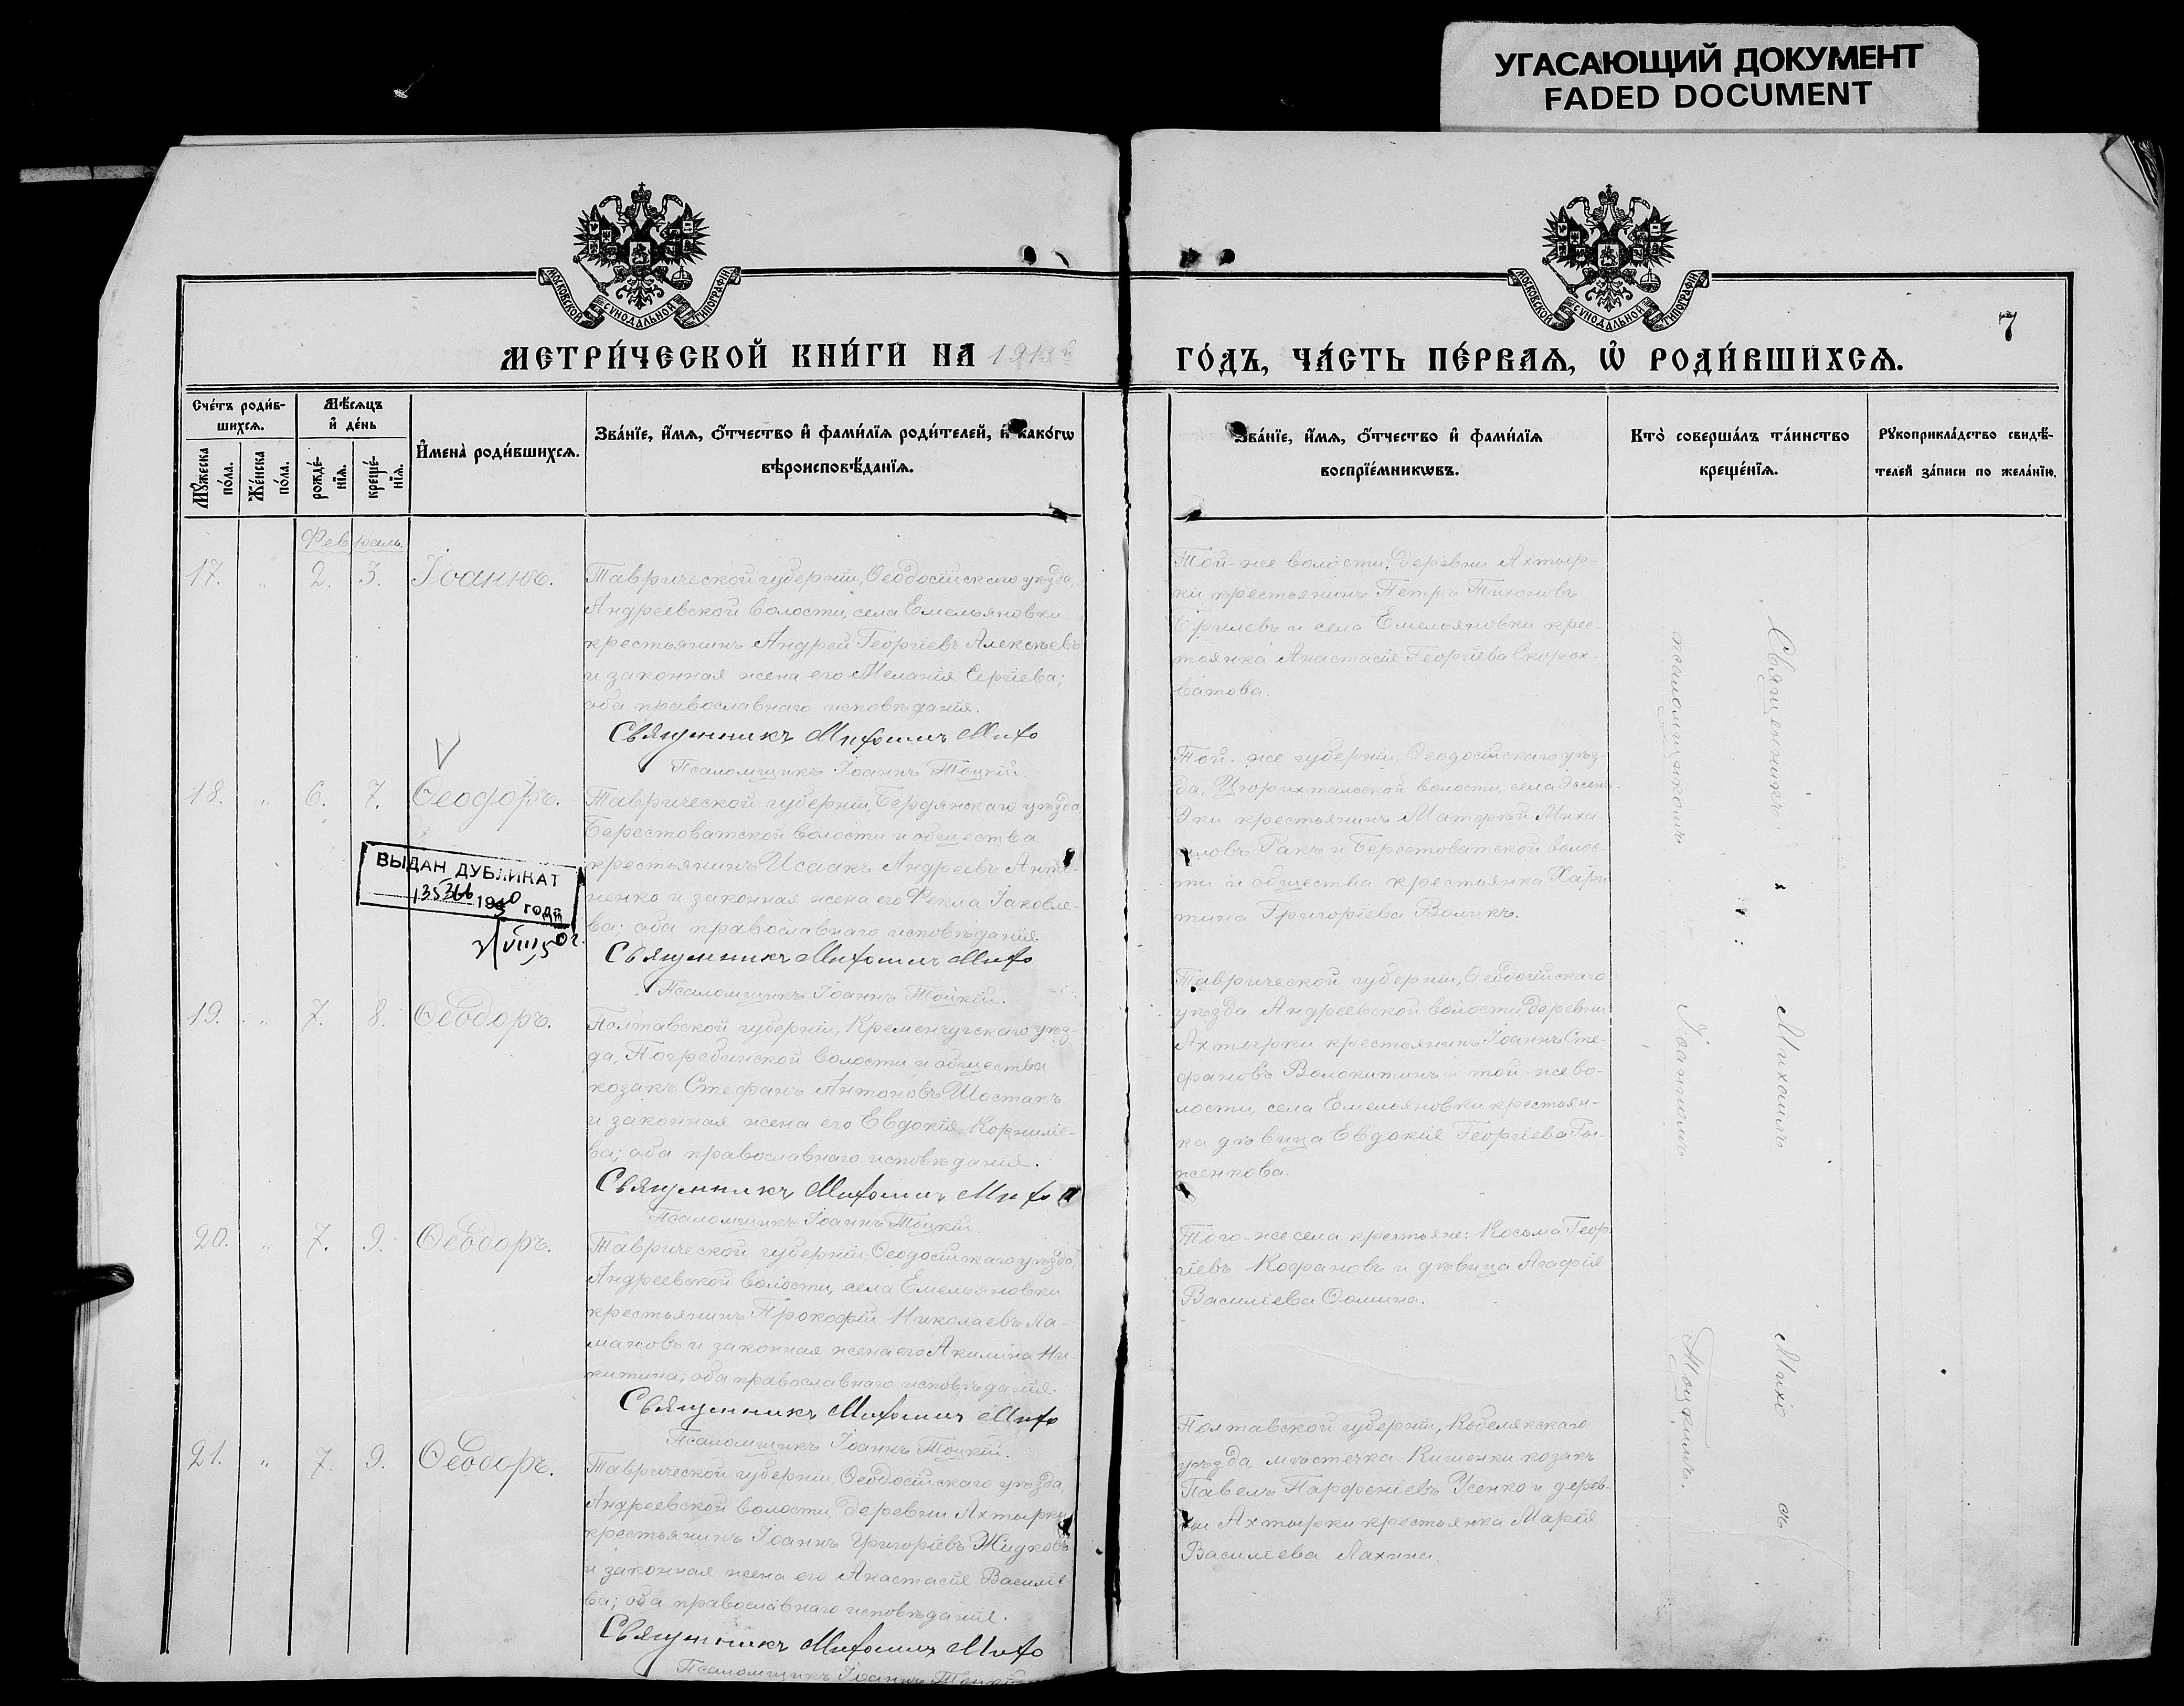 УГАСАЮЩИЙ ДОКУМЕНТ
FADED DOCUMENT
МОСКОВСКОЙ СУНОДАЛЬНОЙ ТИПОГРАФІИ
МОСКОВСКОЙ СУНОДАЛЬНОЙ ТИПОГРАФІИ
7
МЕТРИ́ЧЕСКОЙ КНИ́ГИ НА
ГО́ДЪ, ЧА́СТЬ ПЕ́РВАѦ, Ѡ҆ РОДИ́ВШИХСѦ.
Сче́тъ роди́в-
шихсѧ.
Мꙋ́жеска по́ла.
Же́нска по́ла.
Мѣ́сѧцъ
и҆ де́нь
рожде́-
нїѧ.
креще́-
нїѧ.
И҆мена̀ роди́вшихсѧ.
Зва́нїе, и҆́мѧ, ѻ҆́тчество и҆ фами́лїѧ роди́телей, и҆ како́гѡ
вѣроисповѣ́данїѧ.
Зва́нїе, и҆́мѧ, ѻ҆́тчество и҆ фами́лїѧ
воспрїе́мникѡвъ.
Кто̀ соверша́лъ та́инство
креще́нїѧ.
Рꙋкоприкла́дство свидѣ́-
телей за́писи по жела́нїю.
Февраль.
17. „ 2. 3. Іоаннъ.
Таврической губерніи, Ѳеодосійскаго уѣзда,
Андреевской волости, села Емельяновки
крестьянинъ Андрей Георгіевъ Алексѣевъ
и законная жена его Меланія Сергіева;
оба православнаго исповѣданія.
Священникъ Михаилъ Михо
Псаломщикъ Іоаннъ Тоцкій.
Той-же волости, деревни Ахтыр-
ки крестьянинъ Петръ Тихоновъ
и села Емельяновки крес-
тьянка Анастасія Георгіева Скорох-
ватова.
18. „ 6. 7. Ѳеодоръ.
Таврической губерніи, Бердянскаго уѣзда,
Берестоватской волости и общества
крестьянинъ Исаакъ Андреевъ Анто-
ненко и законная жена его Ѳекла Іаковле-
ва; оба православнаго исповѣданія.
Священникъ Михаилъ Михо
Псаломщикъ Іоаннъ Тоцкій.
ВЫДАН ДУБЛИКАТ
года
Той-же губерніи, Ѳеодосійскаго уѣз-
да, Цюрихтальской волости, села Эссенъ-
Эки крестьянинъ Матѳей Миха
иловъ Ракъ и Берестоватской волос-
ти и общества крестьянка Хари
тина Григоріева Воликъ.
19. „ 7. 8. Ѳеодоръ.
Полтавской губерніи, Кременчугскаго уѣз-
да, Погребинской волости и общества
козакъ Стефанъ Антоновъ Шостакъ
и законная жена его Евдокія Корниліе-
ва; оба православнаго исповѣданія.
Священникъ Михаилъ Михо
Псаломщикъ Іоаннъ Тоцкій.
Таврической губерніи, Ѳеодосійскаго
уѣзда Андреевской волости деревни
Ахтырки крестьянинъ Іоаннъ Сте-
фановъ Волокитинъ и той-же во-
лости, села Емельяновки крестьян-
ка дѣвица Евдокія Георгіева
женкова.
20. „ 7. 9. Ѳеодоръ.
Таврической губерніи, Ѳеодосійскаго уѣзда,
Андреевской волости, села Емельяновки
крестьянинъ Прокофій Николаевъ Ла-
мановъ и законная жена его Акилина Ни-
китина; оба православнаго исповѣданія.
Священникъ Михаилъ Михо
Псаломщикъ Іоаннъ Тоцкій.
Того-же села крестьяне: Косьма Геор
гіевъ Кофановъ и дѣвица Агафія
Василіева Ѳомина.
21. „ 7. 9. Ѳеодоръ.
Таврической губерніи, Ѳеодосійскаго уѣзда,
Андреевской волости, деревни Ахтырки
крестьянинъ Іоаннъ Григоріевъ Жидковъ
и законная жена его Анастасія Василіе
ва; оба православнаго исповѣданія.
Священникъ Михаилъ Михо
Псаломщикъ Іоаннъ Тоцкій
Полтавской губерніи, Кобелякскаго
уѣзда, мѣстечка Кишенки козакъ
Павелъ Парфеніевъ Усенко и дерев-
ни Ахтырки крестьянка Марія
Василіева Лахина.
Священникъ Михаилъ Михо съ
псаломщикомъ Іоанномъ Тоцкимъ.